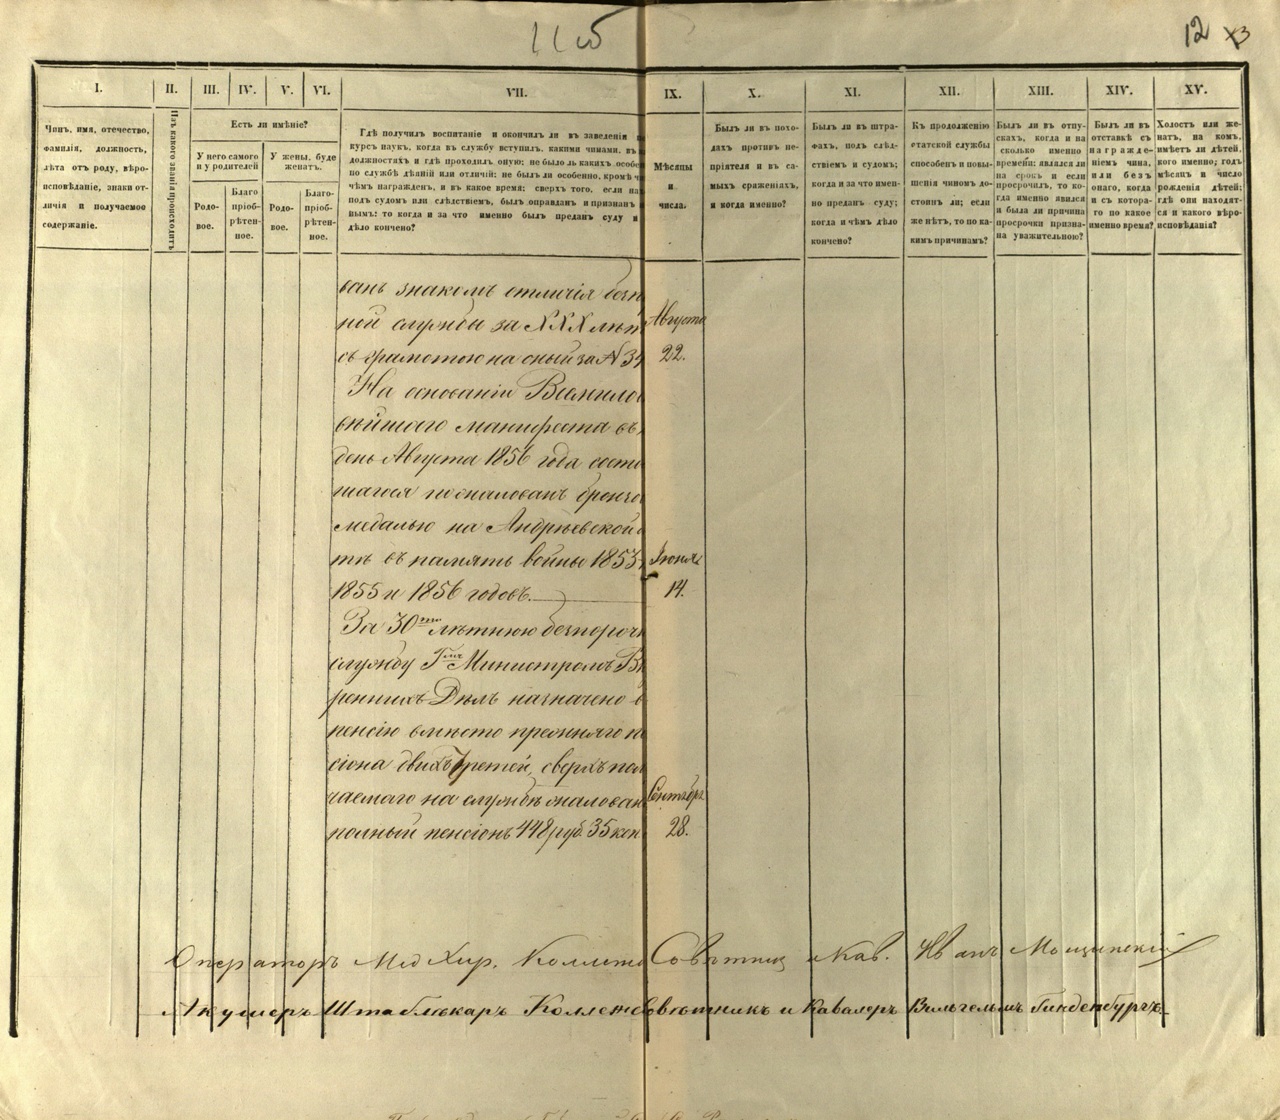 11 об
12
I. II. III. IV. V. VI. VII. IX. X. XI. XII. XIII. XIV. XV.
Чинъ, имя, отечество,
фамилія, должность,
лѣта отъ роду, вѣро-
исповѣданіе, знаки от-
личія и получаемое
содержаніе.
Изъ какого званія происходитъ
Есть ли имѣніе?
У него самого
и у родителей
У жены, буде
женатъ.
Родо-
вое.
Благо
пріоб-
рѣтен-
ное.
Родо-
вое.
Благо-
пріоб-
рѣтен-
ное.
Гдѣ получилъ воспитаніе и окончилъ ли въ заведеніи
курсъ наукъ, когда въ службу вступилъ, какими чинами, въ
должностяхъ и гдѣ проходилъ оную; не было ль какихъ особен
по службѣ дѣяній или отличій; не былъ ли особенно, кромѣ
чѣмъ награжденъ, и въ какое время; сверхъ того, если на
подъ судомъ или слѣдствіемъ, былъ оправданъ и признанъ
нымъ: то когда и за что именно былъ преданъ суду и
дѣло кончено?
Мѣсяцы
и
числа.
Былъ ли въ похо-
дахъ противъ не-
пріятеля и въ са-
мыхъ сраженіяхъ,
и когда именно?
Былъ ли въ штра-
фахъ, подъ слѣд-
ствіемъ и судомъ;
когда и за что имен-
но преданъ суду;
когда и чѣмъ дѣло
кончено?
Къ продолженію
статской службы
способенъ и повы-
шенія чиномъ до-
стоинъ ли; если
же нѣтъ, то по ка-
кимъ причинамъ?
Былъ ли въ отпу-
скахъ, когда и на
сколько именно
времени; являлся ли
на срокъ и если
просрочилъ, то ко-
гда именно явился
и была ли причина
просрочки призна-
на уважительною?
Былъ ли въ
отставкѣ съ
награжде-
ніемъ чина,
или безъ
онаго, когда
и съ котора-
го по какое
именно время?
Холостъ или же-
натъ, на комъ,
имѣетъ ли дѣтей,
кого именно; годъ
мѣсяцъ и число
рожденія дѣтей;
гдѣ они находят-
ся и какого вѣро-
исповѣданія?
ванъ знакомъ отличія безп
ной службы за XXX лѣт Августа
съ грамотою на оный за № 34 22.
На основаніи Всемило
вѣйшаго манифеста въ
день Августа 1856 года состо
шагося пожалованъ бронзо
медалью на Андреевской
тѣ въ память войны 1853 Іюня
1855 и 1856 годовъ. 14.
За 30ти лѣтнюю безпороч
службу Гмъ Министромъ В
реннихъ Дѣлъ назначено в
пенсію вмѣсто прежняго
сіона двухъ третей, сверхъ пол
чаемаго на службѣ жалован Сентября
полный пенсіонъ 448 руб. 35 коп 28.
Операторъ Мед Хир. Коллеж Совѣтник и Кав. Иванъ Мощинскій
Акушеръ Штаблѣкаръ Коллеж Совѣтникъ и Кавалеръ Вильгельмъ Гинденбургъ